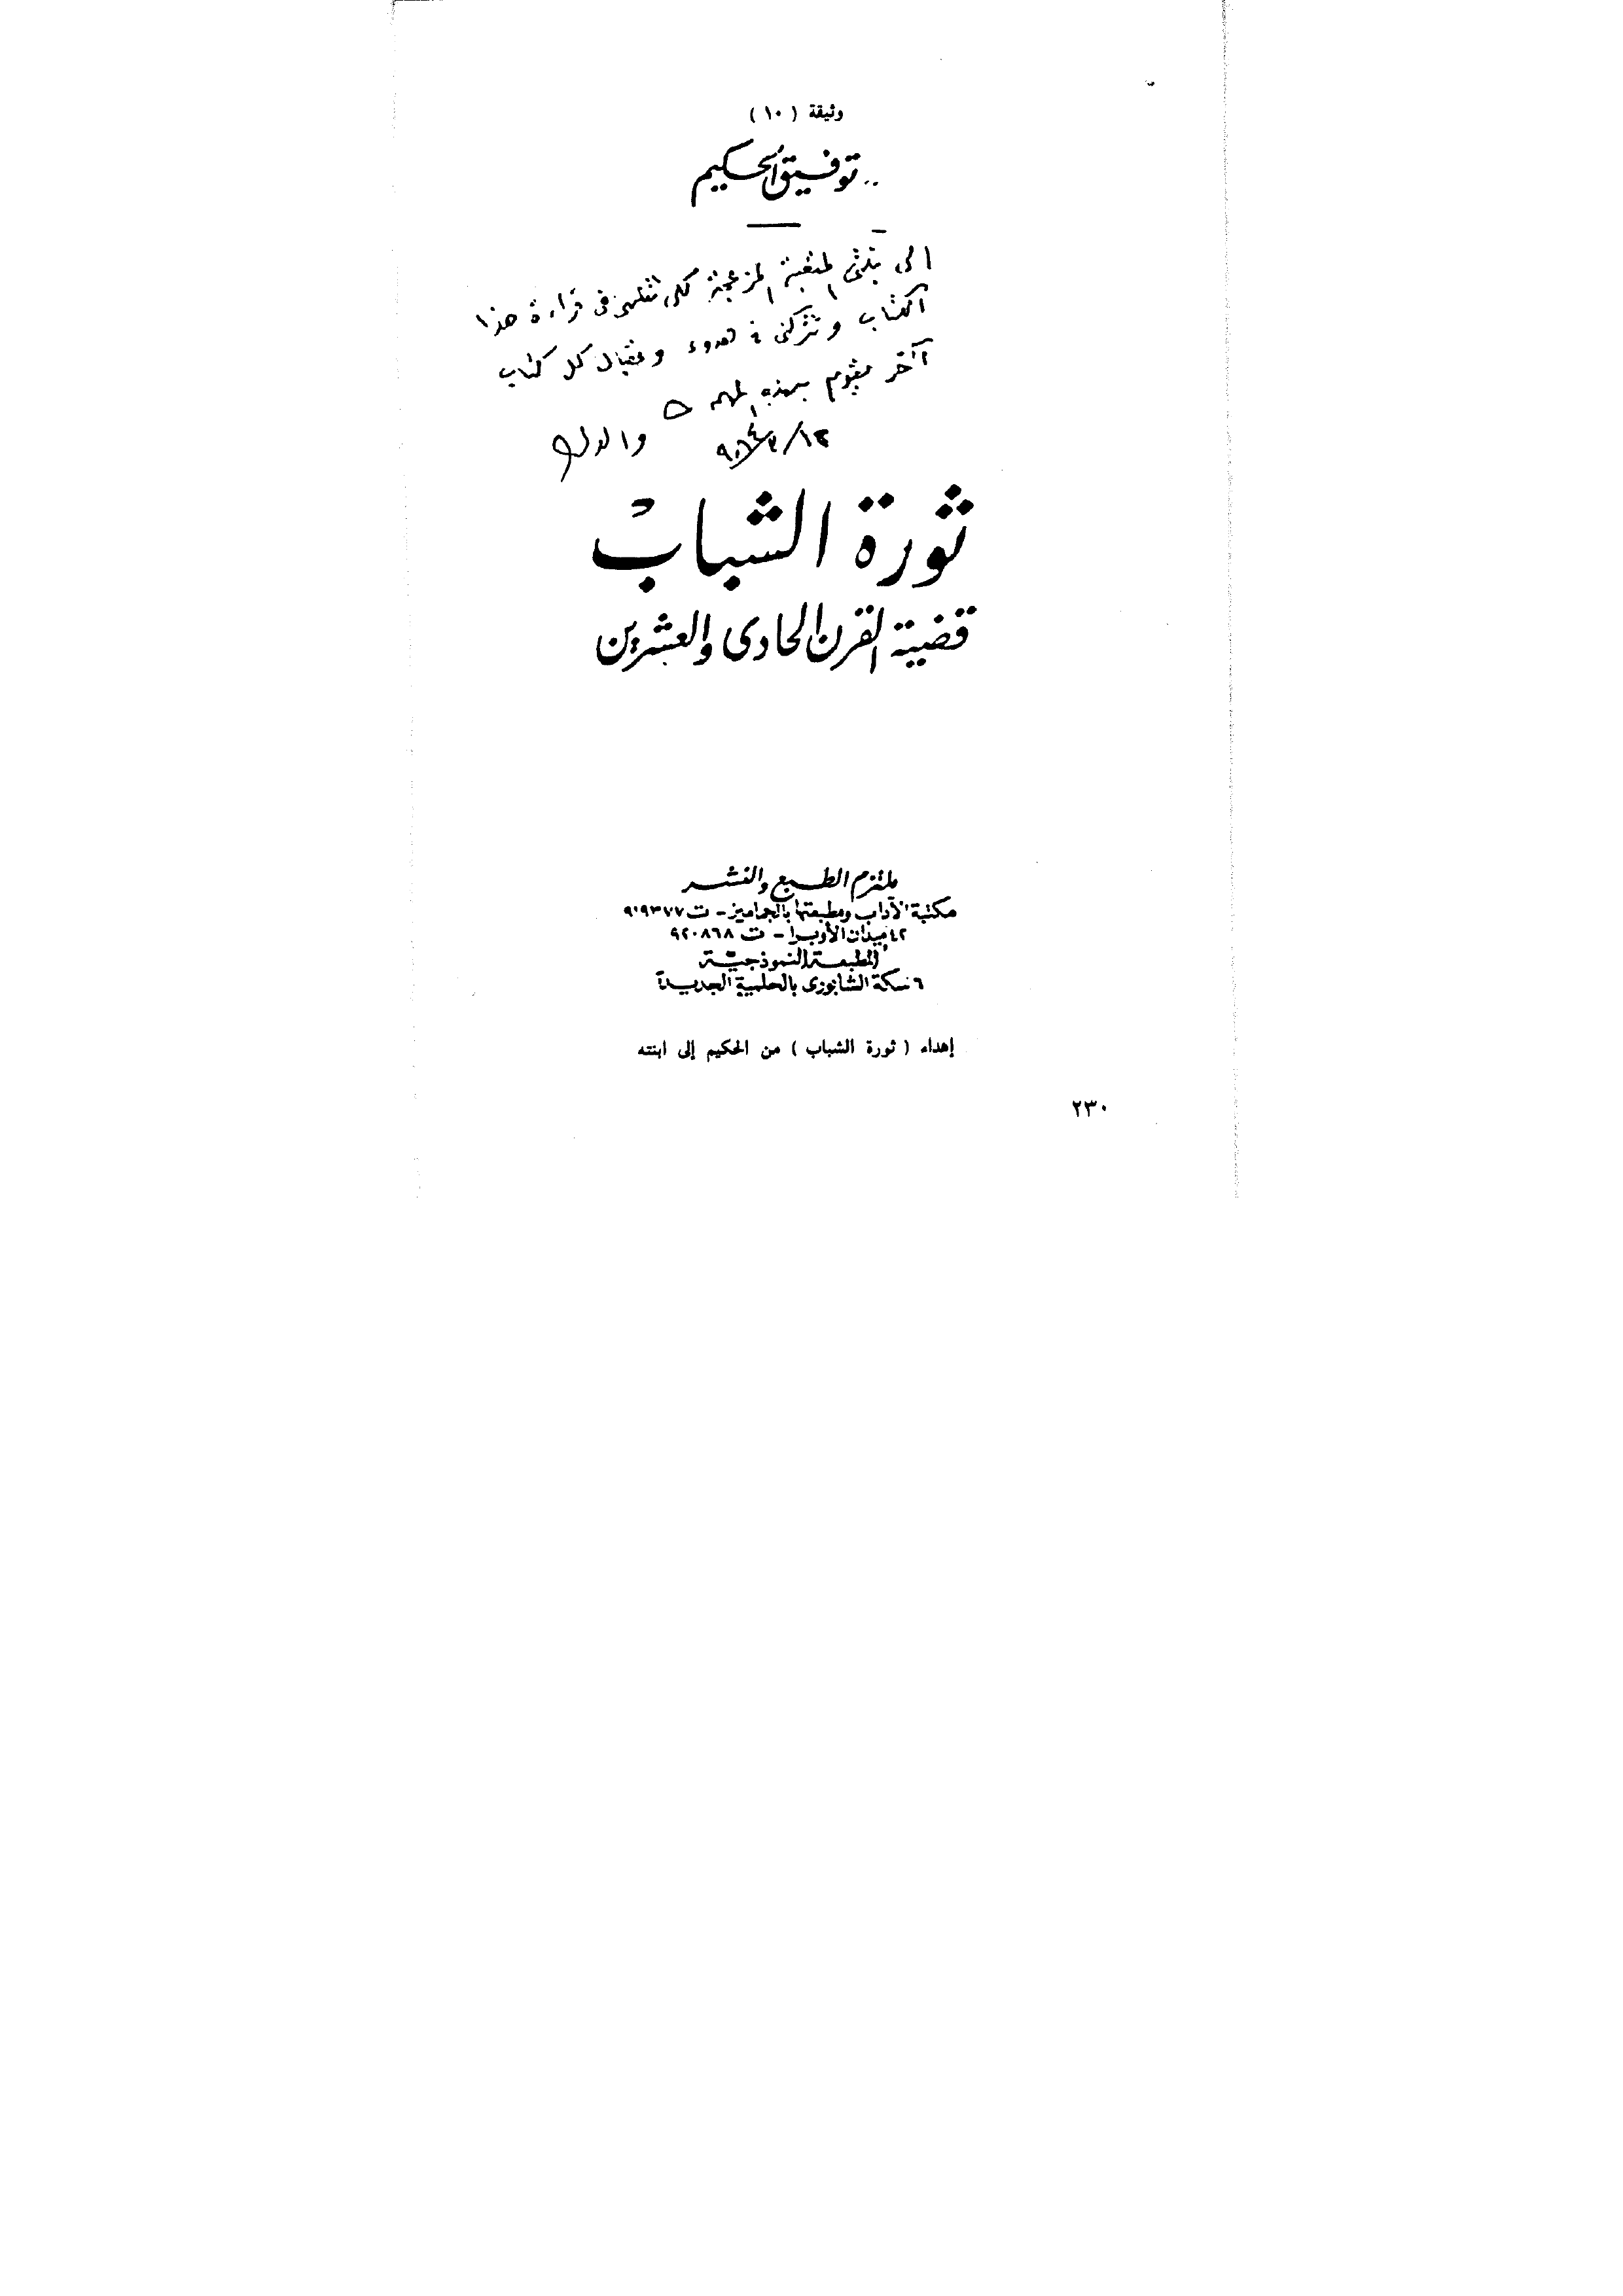 وثيقة ( ١٠ )
توفيق الحكيم
الى بنتى المتعبة المزعجة لكى تنلهى فى قراءة هذا
الكتاب وتتركنى فى هدوء وعقبال كل كتاب
آخر يقوم بهذه المهمه
والدك
ثورة الشباب
قضية القرن الحادى والعشرين
ملتزم الطبع والنشر
مكتبة الآداب ومطبعتها بالجماميز - ت ٩١٩٣٧٧
٤٢ ميدان الأوبرا - ت ٩٢٠٨٦٨
المطبعة النموذجية
٦ سكة الشابورى بالحلمية الجديدة
إهداء ( ثورة الشباب ) من الحكيم إلى ابنته
٢٣٠